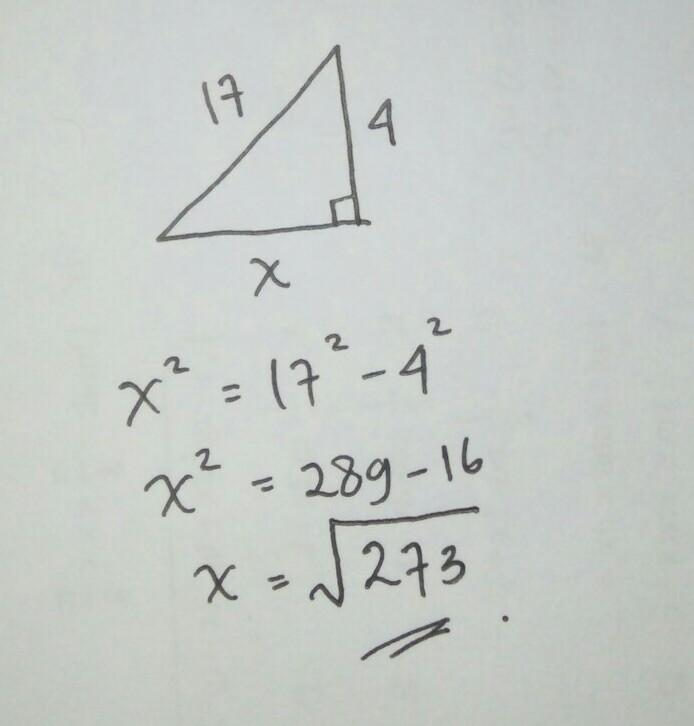 17
4
x
x² = 17² - 4²
x² = 289 - 16
x = √273